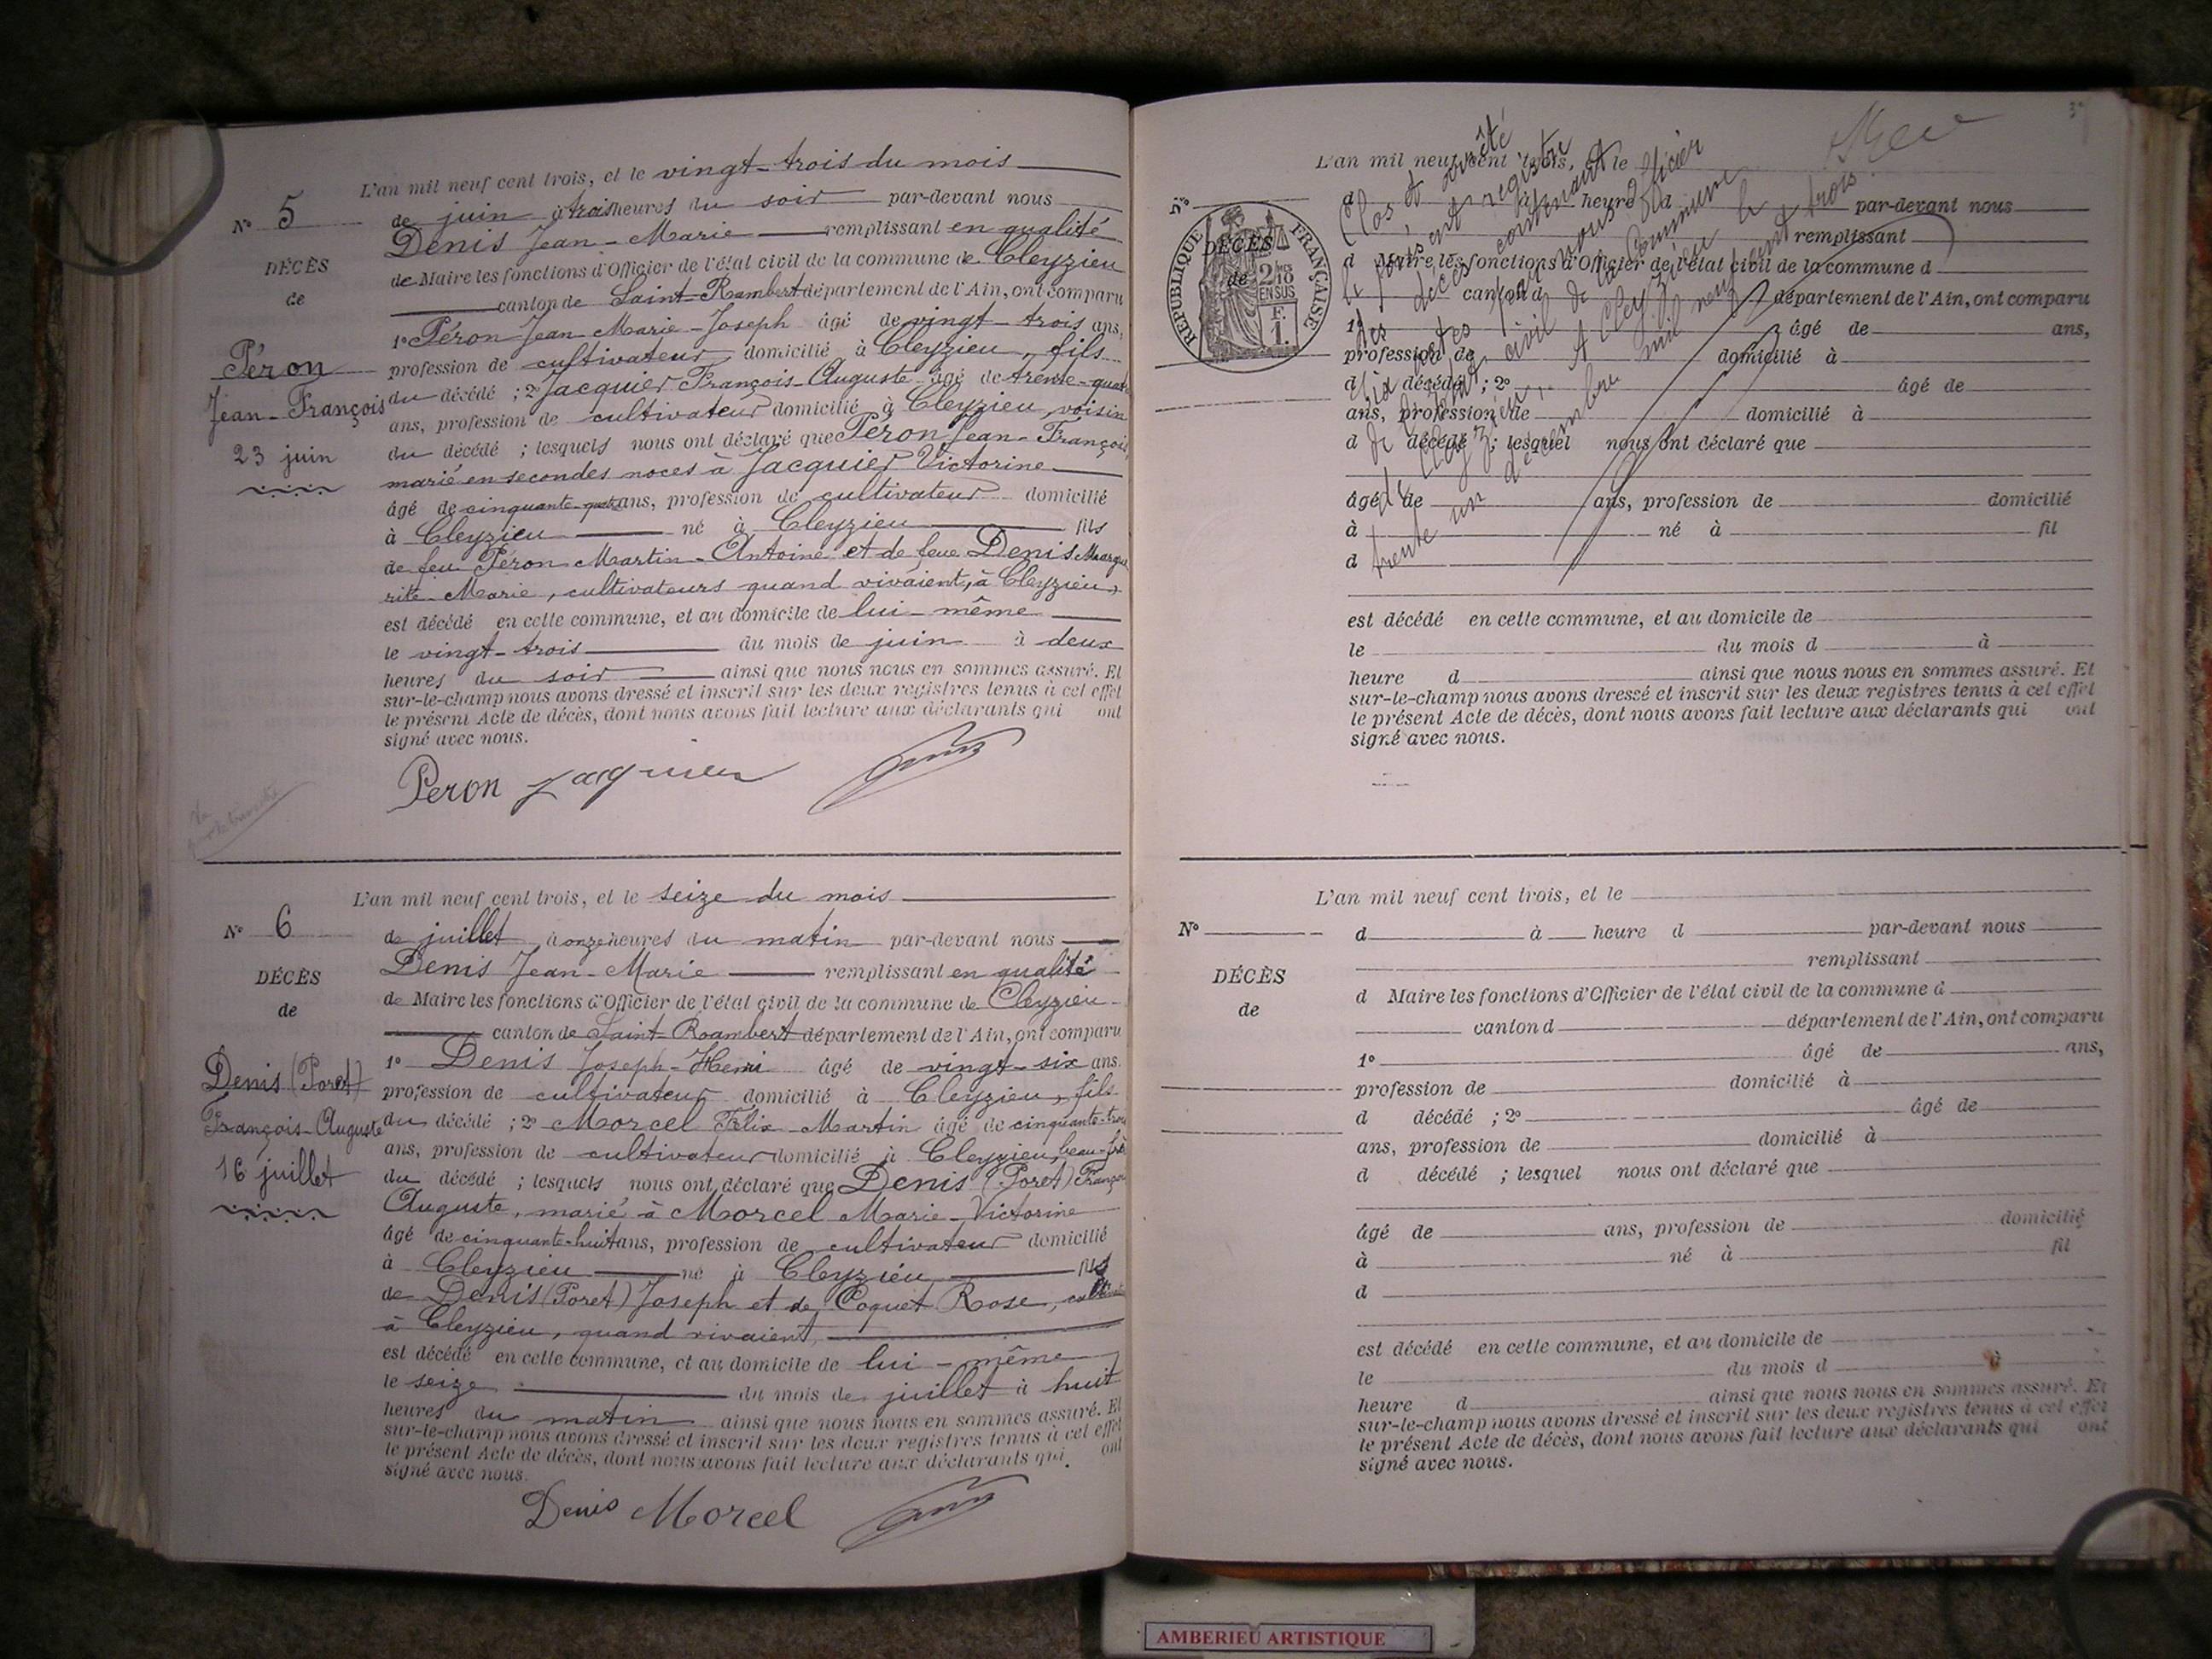 L'an mil neuf cent trois, et le vingt-trois du mois
N° 5
de juin à trois heures du soir par-devant nous
Denis Jean-Marie remplissant en qualité
DÉCÈS
de Maire les fonctions d'Officier de l'état civil de la commune de Cleyzieu
de
canton de Saint-Rambert département de l'Ain, ont comparu
1° Péron Jean-Marie-Joseph âgé de vingt-trois ans,
Péron
profession de cultivateur domicilié à Cleyzieu, fils
Jean-François
du décédé ; 2° Jacquier François-Auguste âgé de trente-quatre
ans, profession de cultivateur domicilié à Cleyzieu, voisin
23 juin
du décédé ; lesquels nous ont déclaré que Péron Jean-François,
marié en secondes noces à Jacquier Victorine
âgé de cinquante-quatre ans, profession de cultivateur domicilié
à Cleyzieu né à Cleyzieu fils
de feu Péron Martin-Antoine et de feue Denis Margue
rite-Marie, cultivateurs quand vivaient, à Cleyzieu,
est décédé en cette commune, et au domicile de lui-même
le vingt-trois du mois de juin à deux
heures du soir ainsi que nous nous en sommes assuré. Et
sur-le-champ nous avons dressé et inscrit sur les deux registres tenus à cet effet
le présent Acte de décès, dont nous avons fait lecture aux déclarants qui ont
signé avec nous.
Peron Jacquier
L'an mil neuf cent trois, et le seize du mois
N° 6
de juillet à onze heures du matin par-devant nous
Denis Jean-Marie remplissant en qualité
DÉCÈS
de Maire les fonctions d'Officier de l'état civil de la commune de Cleyzieu
de
canton de Saint-Rambert département de l'Ain, ont comparu
1° Denis Joseph-Henri âgé de vingt-six ans.
Denis (Poret)
profession de cultivateur domicilié à Cleyzieu, fils
François-Auguste
du décédé ; 2° Morcel Félix-Martin âgé de cinquante-trois
ans, profession de cultivateur domicilié à Cleyzieu, beau-frère
16 juillet
du décédé ; lesquels nous ont déclaré que Denis (Poret) François
Auguste, marié à Morcel Marie-Victorine
âgé de cinquante-huit ans, profession de cultivateur domicilié
à Cleyzieu né à Cleyzieu fils
de Denis (Poret) Joseph et de Coquet Rose,
à Cleyzieu, quand vivaient,
est décédé en cette commune, et au domicile de lui-même
le seize du mois de juillet à huit
heures du matin ainsi que nous nous en sommes assuré. Et
sur-le-champ nous avons dressé et inscrit sur les deux registres tenus à cet effet
le présent Acte de décès, dont nous avons fait lecture aux déclarants qui ont
signé avec nous.
Denis Morcel
Clos et arrêté
le présent registre
des décès contenant
six actes par nous officier
de l'état civil de la commune
de Cleyzieu, A Cleyzieu le
trente un décembre mil neuf cent trois
L'an mil neuf cent trois, et le
N°
d à heure d par-devant nous
remplissant
RÉPUBLIQUE FRANÇAISE
2/10 EN SUS
F. 1.
DÉCÈS
de
d Maire les fonctions d'Officier de l'état civil de la commune d
canton d département de l'Ain, ont comparu
1° âgé de ans,
profession de domicilié à
d décédé ; 2° âgé de
ans, profession de domicilié à
d décédé ; lesquel nous ont déclaré que
âgé de ans, profession de domicilié
à né à fil
d
est décédé en cette commune, et au domicile de
le du mois d à
heure d ainsi que nous nous en sommes assuré. Et
sur-le-champ nous avons dressé et inscrit sur les deux registres tenus à cet effet
le présent Acte de décès, dont nous avons fait lecture aux déclarants qui ont
signé avec nous.
L'an mil neuf cent trois, et le
N°
d à heure d par-devant nous
remplissant
DÉCÈS
d Maire les fonctions d'Officier de l'état civil de la commune d
de
canton d département de l'Ain, ont comparu
1° âgé de ans,
profession de domicilié à
d décédé ; 2° âgé de
ans, profession de domicilié à
d décédé ; lesquel nous ont déclaré que
âgé de ans, profession de domicilié
à né à fil
d
est décédé en cette commune, et au domicile de
le du mois d à
heure d ainsi que nous nous en sommes assuré. Et
sur-le-champ nous avons dressé et inscrit sur les deux registres tenus à cet effet
le présent Acte de décès, dont nous avons fait lecture aux déclarants qui ont
signé avec nous.
AMBERIEU ARTISTIQUE